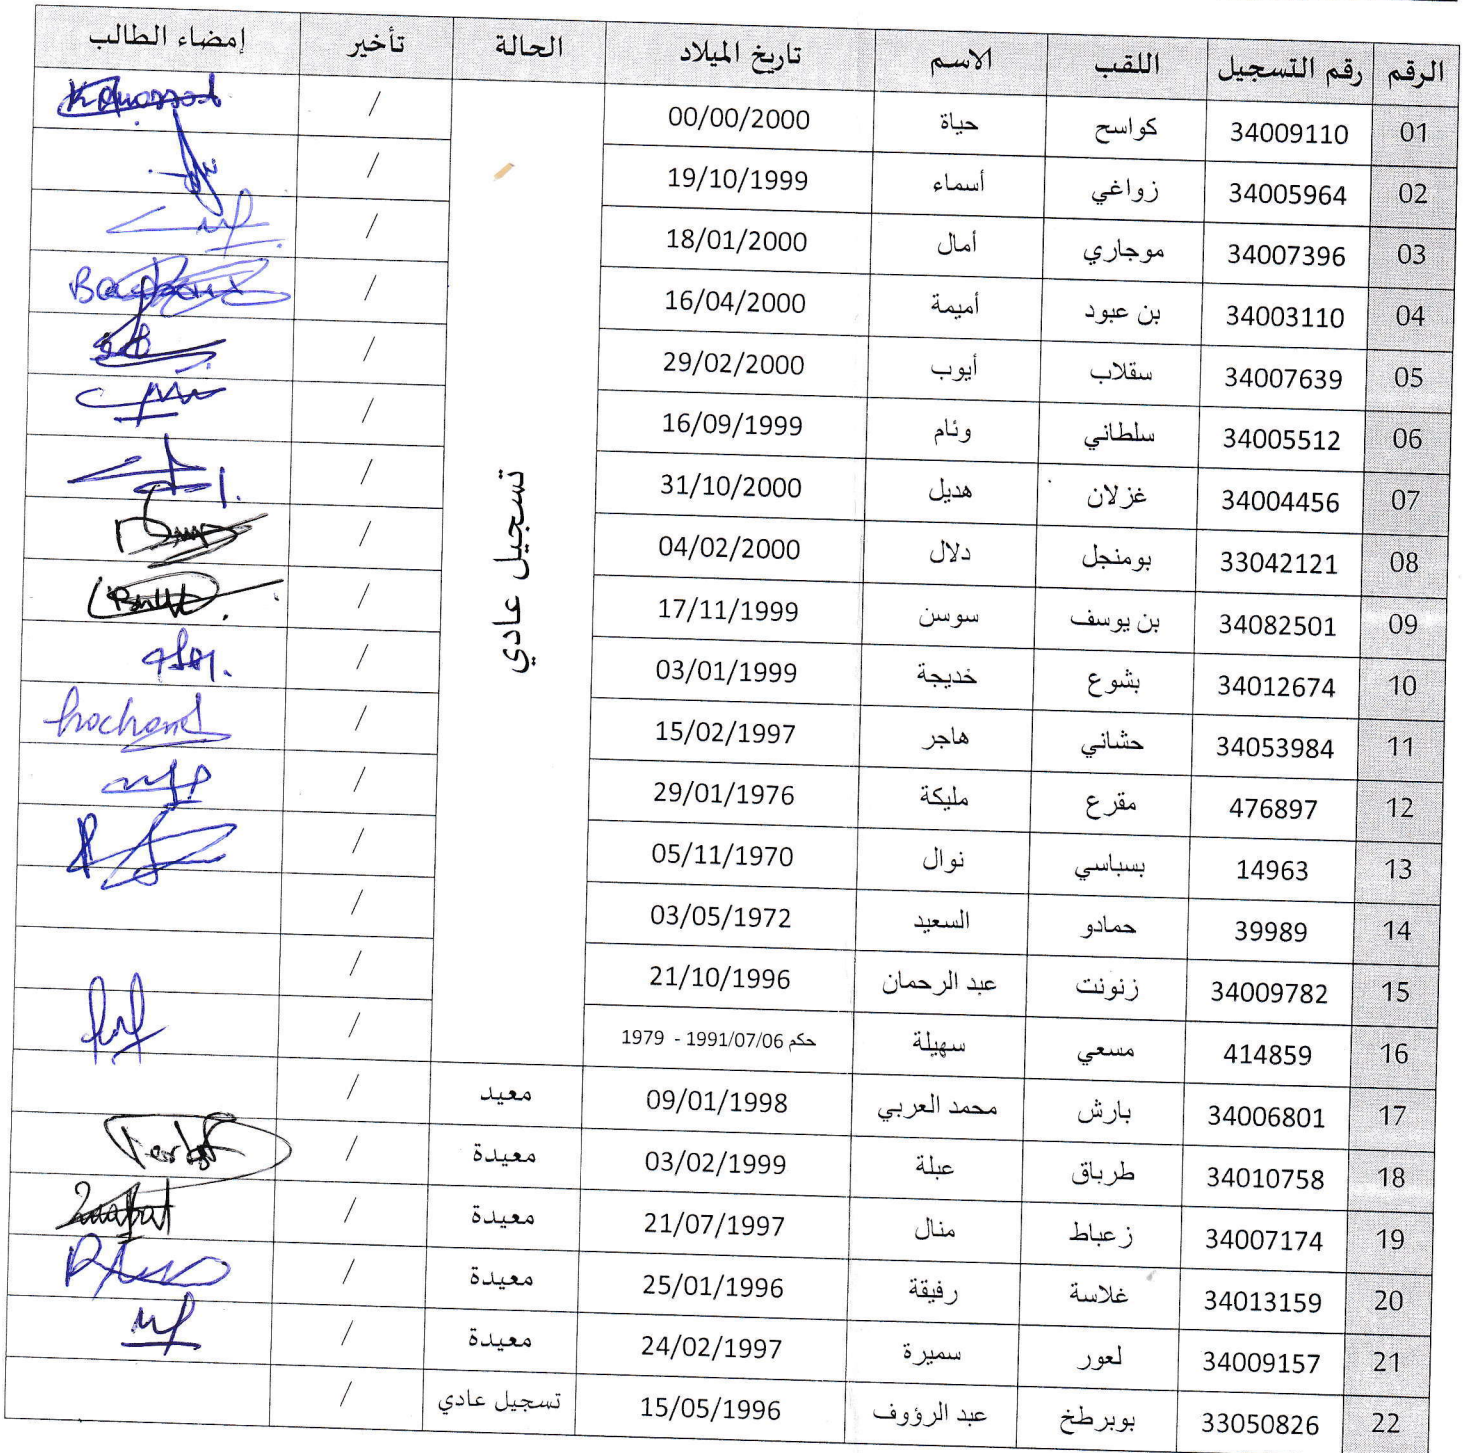 الرقم رقم التسجيل اللقب الاسم تاريخ الميلاد الحالة تأخير إمضاء الطالب
01 34009110 كواسح حياة 00/00/2000 تسجيل عادي /
02 34005964 زواغي أسماء 19/10/1999 /
03 34007396 موجاري أمال 18/01/2000 /
04 34003110 بن عبود أميمة 16/04/2000 /
05 34007639 سقلاب أيوب 29/02/2000 /
06 34005512 سلطاني وئام 16/09/1999 /
07 34004456 غزلان هديل 31/10/2000 /
08 33042121 بومنجل دلال 04/02/2000 /
09 34082501 بن يوسف سوسن 17/11/1999 /
10 34012674 بشوع خديجة 03/01/1999 /
11 34053984 حشاني هاجر 15/02/1997 /
12 476897 مقرع مليكة 29/01/1976 /
13 14963 بسباسي نوال 05/11/1970 /
14 39989 حمادو السعيد 03/05/1972 /
15 34009782 زنونت عبد الرحمان 21/10/1996 /
16 414859 مسعي سهيلة حكم 1991/07/06 - 1979 /
17 34006801 بارش محمد العربي 09/01/1998 معيد /
18 34010758 طرباق عبلة 03/02/1999 معيدة /
19 34007174 زعباط منال 21/07/1997 معيدة /
20 34013159 غلاسة رفيقة 25/01/1996 معيدة /
21 34009157 لعور سميرة 24/02/1997 معيدة /
22 33050826 بوبرطخ عبد الرؤوف 15/05/1996 تسجيل عادي /